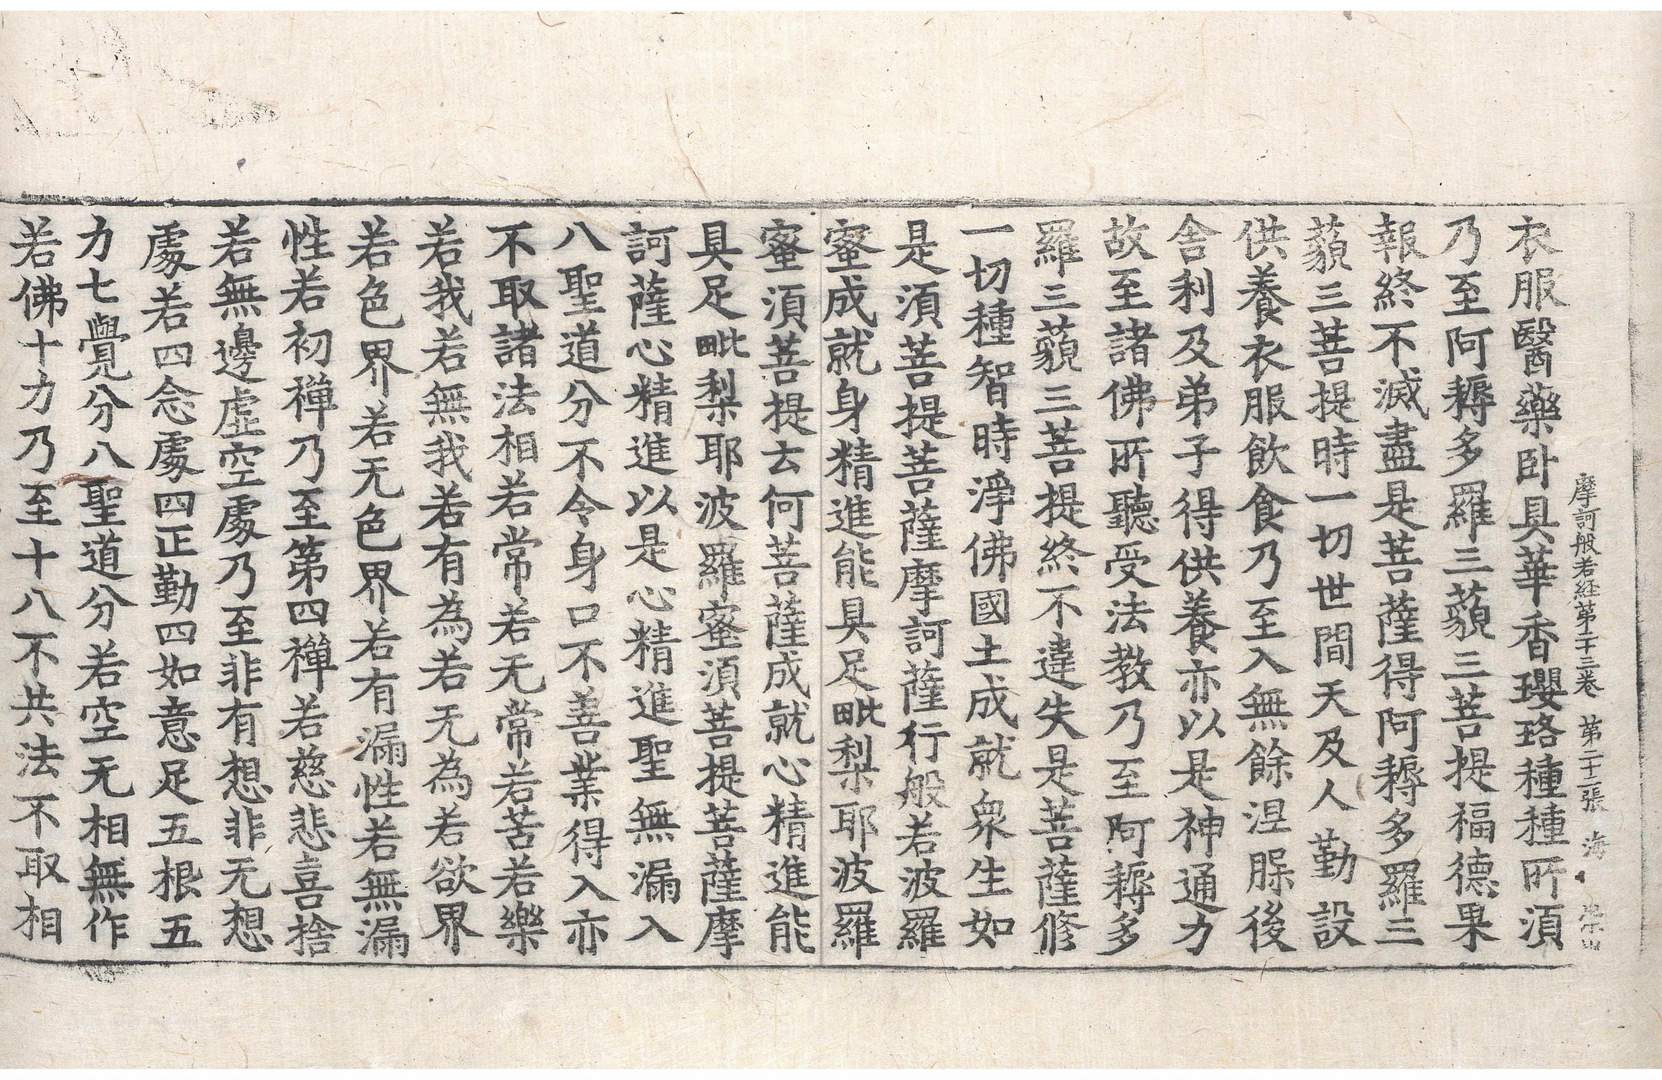 摩訶般若経第二十三卷 第二十二張 海
衣服醫藥卧具華香瓔珞種種所須
乃至阿耨多羅三藐三菩提福德果
報終不滅盡是菩薩得阿耨多羅三
藐三菩提時一切世間天及人勤設
供養衣服飲食乃至入無餘涅槃後
舍利及弟子得供養亦以是神通力
故至諸佛所聽受法教乃至阿耨多
羅三藐三菩提終不違失是菩薩修
一切種智時淨佛國土成就衆生如
是須菩提菩薩摩訶薩行般若波羅
蜜成就身精進能具足毗梨耶波羅
蜜須菩提云何菩薩成就心精進能
具足毗梨耶波羅蜜須菩提菩薩摩
訶薩心精進以是心精進聖無漏入
八聖道分不令身口不善業得入亦
不取諸法相若常若无常若苦若樂
若我若無我若有為若无為若欲界
若色界若无色界若有漏性若無漏
性若初禅乃至第四禅若慈悲喜捨
若無邊虛空處乃至非有想非无想
處若四念處四正勤四如意足五根五
力七覺分八聖道分若空无相無作
若佛十力乃至十八不共法不取相